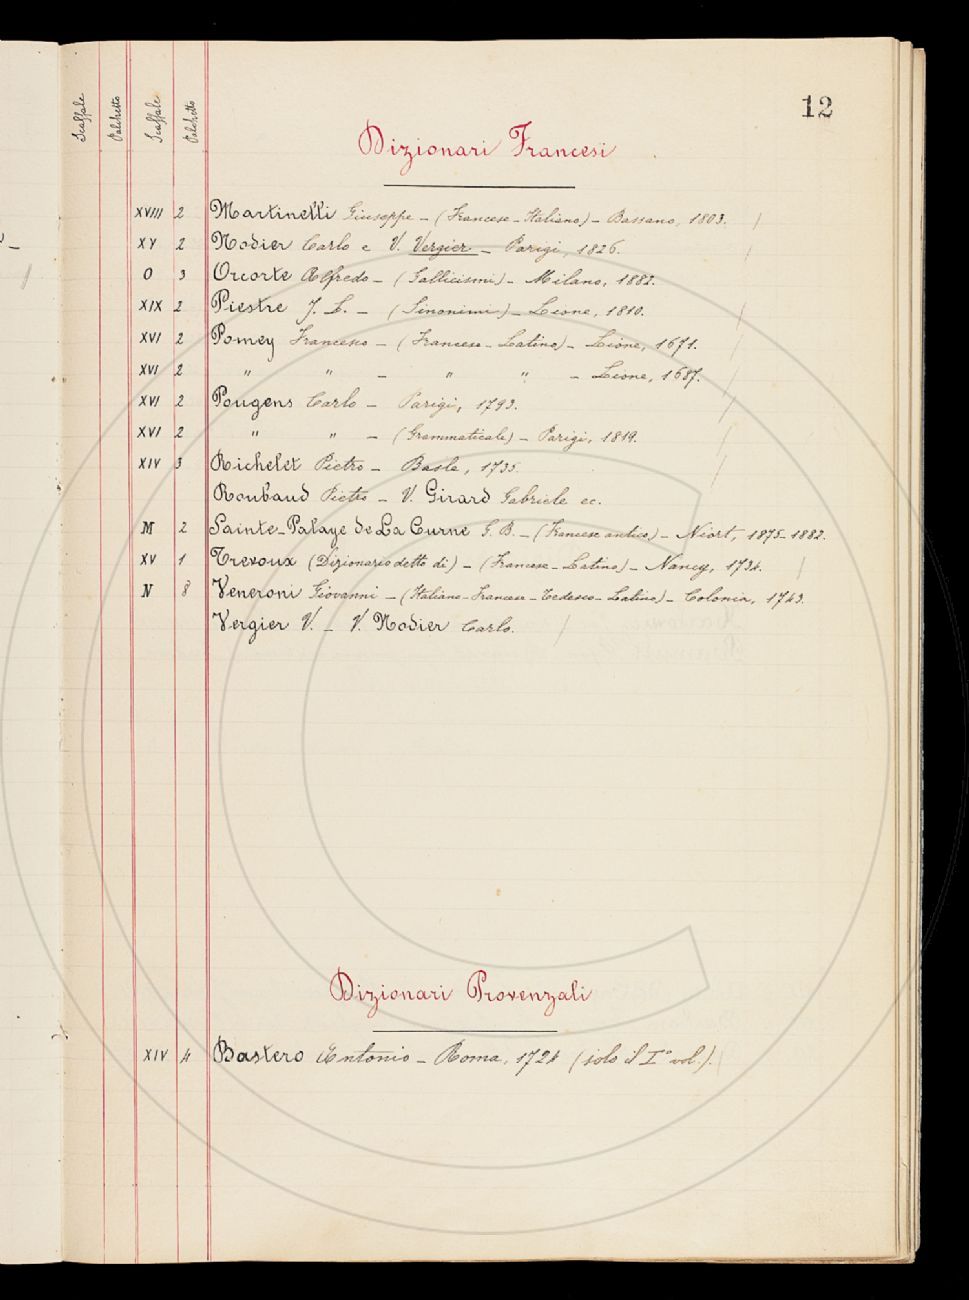 12
Scaffale Palchetto Scaffale Palchetto
Dizionari Francesi
XVIII 2 Martinelli Giuseppe – (Francese – Italiano) – Bassano, 1803.
XV 2 Nodier Carlo e V. Vergier – Parigi, 1826.
O 3 Orcorte Alfredo – (Gallicismi) – Milano, 1882.
XIX 2 Piestre J. L. – (Sinonimi) – Leone, 1810.
XVI 2 Pomey Francesco – (Francese – Latino) – Lione, 1671.
XVI 2 " " – " " – Lione, 1687.
XVI 2 Pougens Carlo – Parigi, 1793.
XVI 2 " " – (Grammaticale) – Parigi, 1819.
XIV 3 Richelet Pietro – Basle, 1735.
Roubaud Pietro – V. Girard Gabriele ec.
M 2 Sainte-Palaye de La Curne G. B. – (Francese antico) – Niort, 1875-1882.
XV 1 Trevoux (Dizionario detto di) – (Francese – Latino) – Nancy, 1734.
N 8 Veneroni Giovanni – (Italiano – Francese – Tedesco – Latino) – Colonia, 1743.
Vergier V. – V. Nodier Carlo.
Dizionari Provenzali
XIV 4 Bastero Antonio – Roma, 1724 (solo il I° vol.).